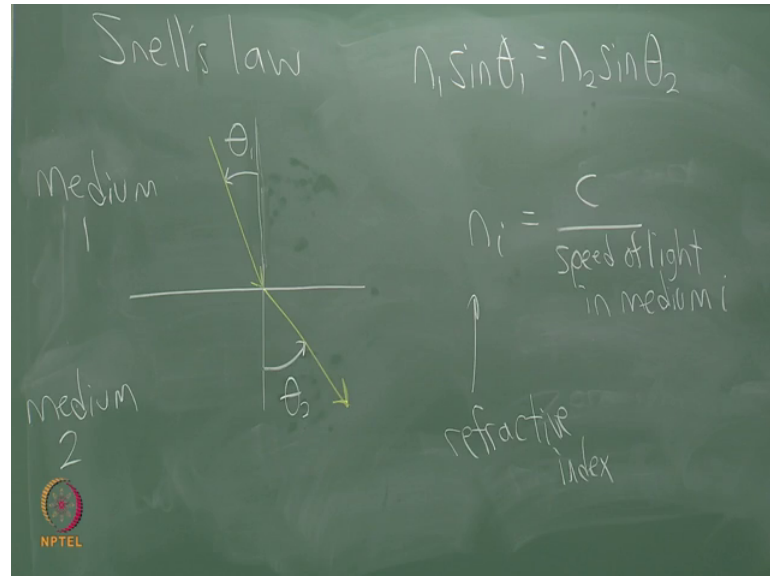 Snell's law
n₁ sinθ₁ = n₂ sinθ₂
θ₁
medium
1
nᵢ = c
speed of light
in medium i
θ₂
medium
2
refractive
index
NPTEL